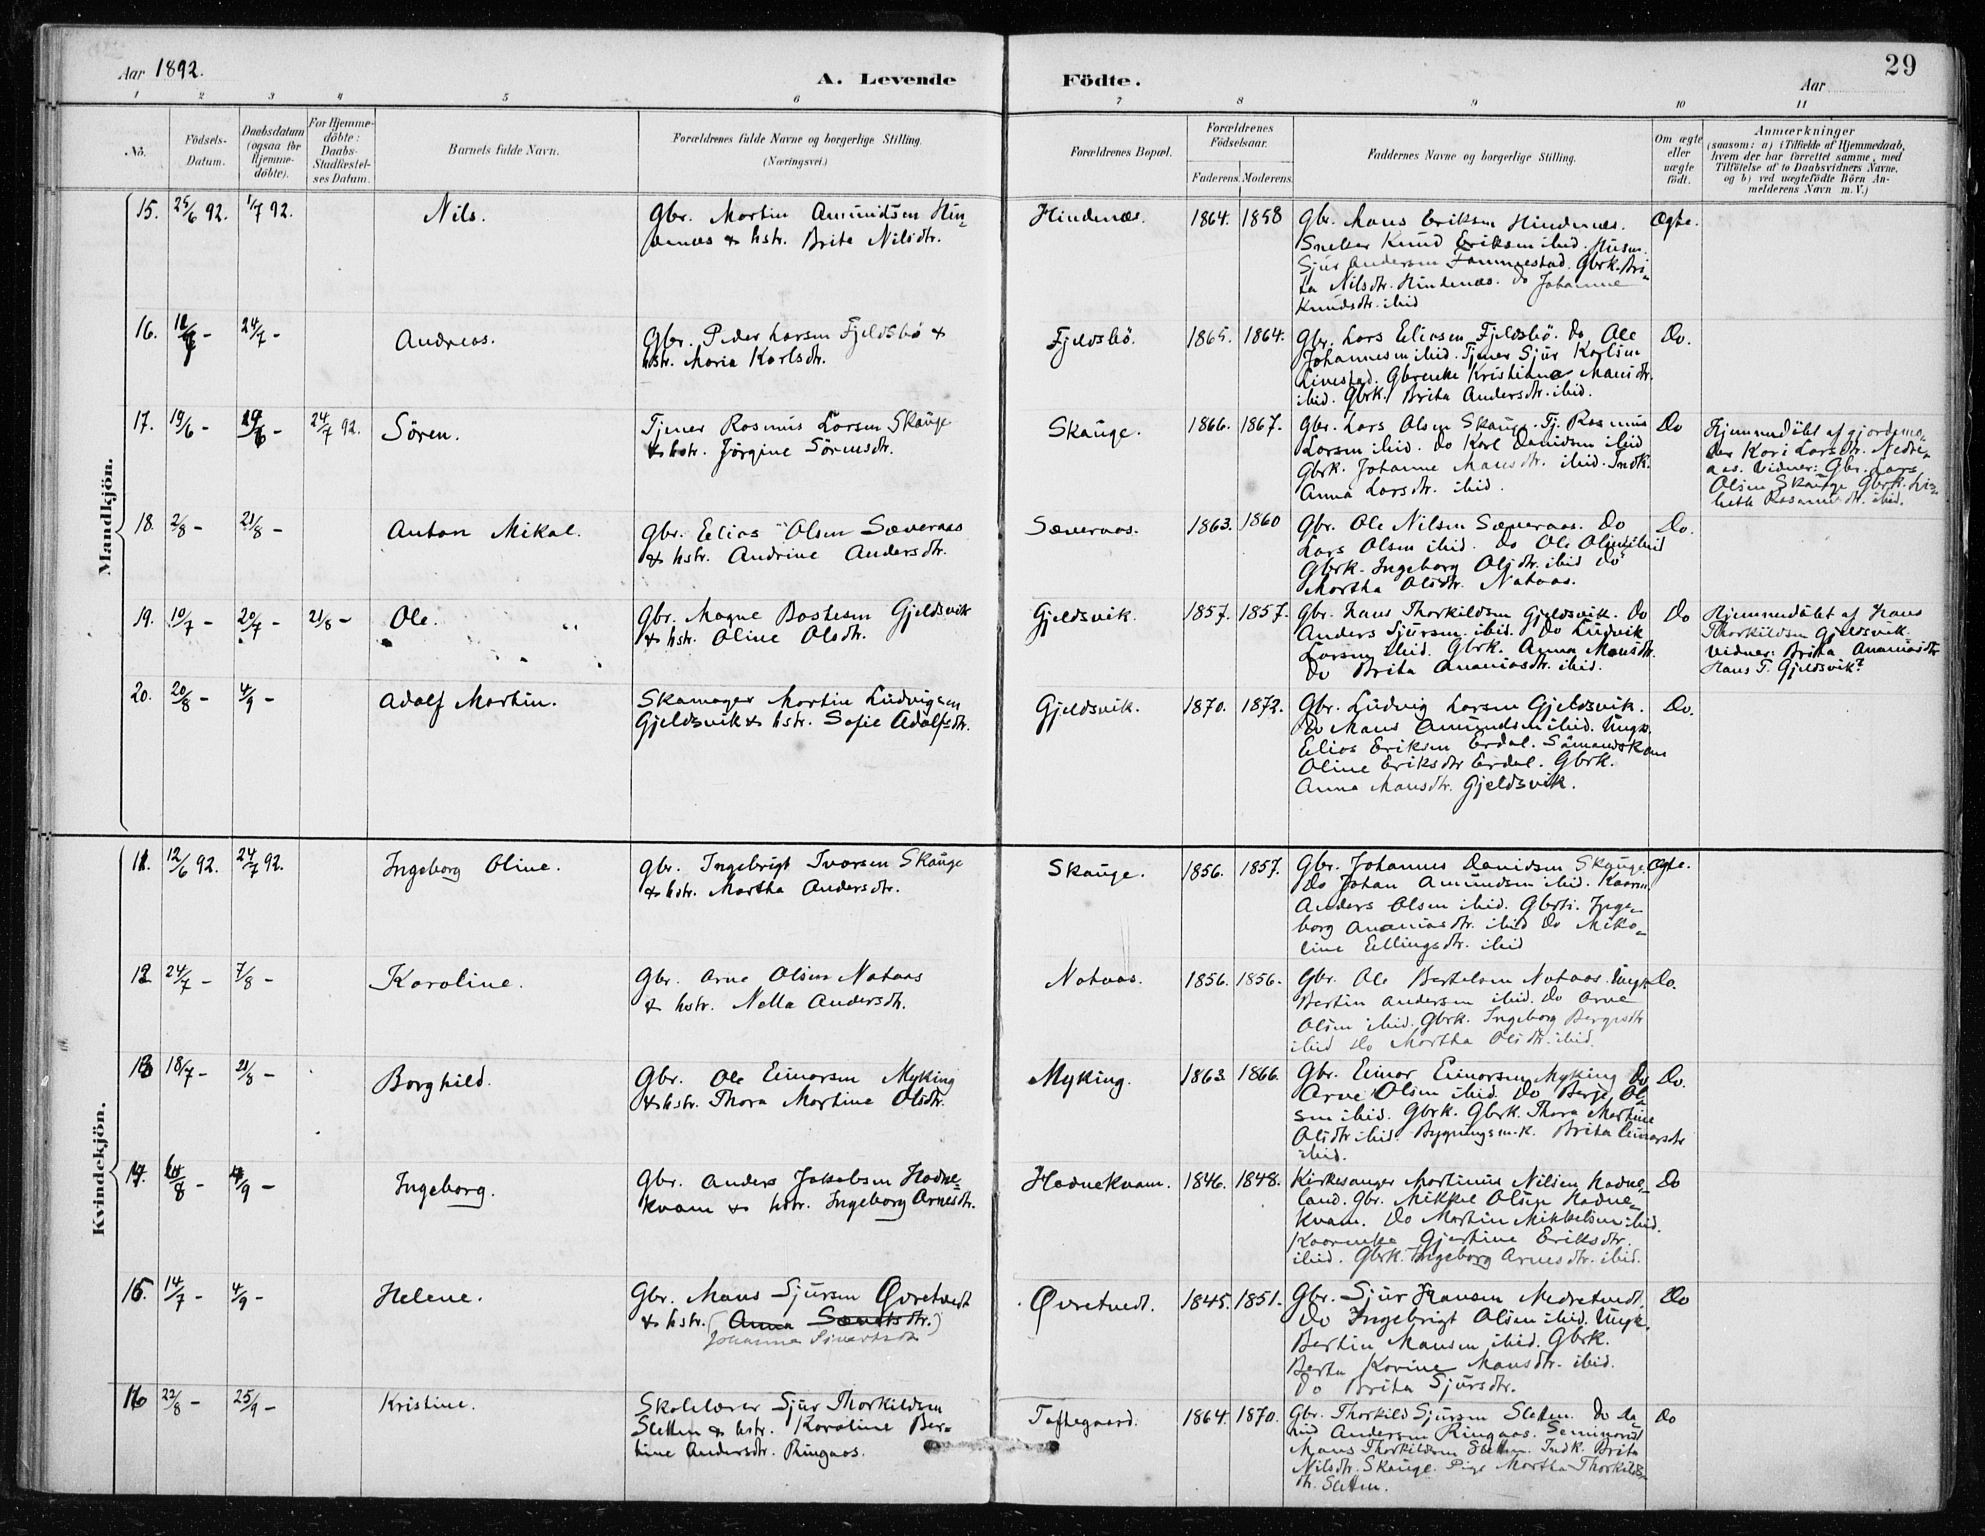 Aar 1892.
A. Levende Födte.
Aar
29
1 2 3 4 5 6 7 8 9 10 11
No.
Födsels-
Datum.
Daabsdatum
(ogsaa for
Hjemme-
döbte).
For Hjemme-
döbte:
Daabs-
Stadfæstel-
ses Datum.
Barnets fulde Navn.
Forældrenes fulde Navne og borgerlige Stilling.
(Næringsvei.)
Forældrenes Bopæl.
Forældrenes
Födselsaar.
Faderens. Moderens.
Faddernes Navne og borgerlige Stilling.
Om ægte
eller
uægte
födt.
Anmærkninger
(saasom: a) i Tilfælde af Hjemmedaab,
hvem der har forrettet samme, med
Tilföielse af to Daabsvidners Navne.
og b) ved uægtefödte Börn An-
melderens Navn m. V.)
Mandkjön.
15. 25/6 92. 1/7 92. Nils.
Gbr. Martin Amundsen Hin-
denæs & hstr. Brita Nilsdtr.
Hindenæs. 1864. 1858
Gbr. Mons Eriksen Hindenæs.
Snekker Knud Eriksen ibid. Husm.
Sjur Andersen Fammestad. Gbrk. Bri-
ta Nilsdtr. Hindenæs. Do Johanne
Knudsdtr. ibid
Ægte.
16. 24/7 - Andreas.
Gbr. Peder Larsen Fjeldsbö &
hstr. Maria Karlsdtr.
Fjeldsbö. 1865. 1864.
Gbr. Lars Eliasen Fjeldsbö. Do Ole
Johannesen ibid. Tjener Sjur Karlsen
Livestad. Gbrenke Kristiane Mansdtr.
ibid. Gbrk. Brita Andersdtr. ibid.
Do.
17. 19/6 - 24/7 92. Sören.
Tjener Rasmus Larsen Skauge
& hstr. Jörgine Sörensdtr.
Skauge. 1866. 1867.
Gbr. Lars Olsen Skauge. Tj. Rasmus
Larsen ibid. Do Karl Davidsen ibid
Gbrk. Johanne Mansdtr. ibid. Indk.
Anna Larsdtr. ibid.
Do
Hjemmedöbt af gjordemo-
der Kari Larsdtr. Nedre-
aas. Vidner: Gbr. Lars
Olsen Skauge Gbrk. Lis-
beth Rasmusdtr. ibid.
18. 2/8 - 21/8 - Anton Mikal.
Gbr. Elias Olsen Sæveraas
& hstr. Andrine Andersdtr.
Sæveraas. 1863. 1860
Gbr. Ole Nilsen Sæveraas. Do
Lars Olsen ibid. Do Ole Olsen ibid
Gbrk. Ingeborg Olsdtr. ibid Do
Martha Olsdtr. Nataas.
Do.
19. 10/7 - 20/7 - 21/8 - Ole.
Gbr. Magne Gjeldsvik
& hstr. Oline Olsdtr.
Gjeldsvik. 1857. 1857.
Gbr. Hans Thorkildsen Gjeldsvik. Do
Anders Sjursen ibid. Do Ludvik
Larsen ibid. Gbrk. Anna Monsdtr.
Do Brita Ananiasdtr. ibid.
Do
Hjemmedöbt af Hans
Thorkildsen Gjeldsvik.
Vidner: Brita Ananiasdtr
Hans T. Gjeldsvik?
20. 20/8 - 4/9 - Adolf Martin.
Skomager Martin Ludvigsen
Gjeldsvik & hstr. Sofie Adolfsdtr.
Gjeldsvik. 1870. 1872.
Gbr. Ludvig Larsen Gjeldsvik.
Do Mans Amundsen ibid. Ungk.
Elias Eriksen Erdal. Sömandskone
Oline Eriksdtr Erdal. Gbrk.
Anna Mansdtr. Gjeldsvik.
Do.
Kvindekjön.
11. 12/6 92. 24/7 92. Ingeborg Oline.
Gbr. Ingebrigt Ivarsen Skauge
& hstr. Martha Andersdtr.
Skauge. 1856. 1857.
Gbr. Johannes Davidsen Skauge.
Do Johan Amundsen ibid. Kaarm.
Anders Olsen ibid. Inge-
borg Ananiasdtr. ibid Do Miko-
line Ellingsdtr. ibid
Ægte.
12 24/7 - 7/8 - Karoline.
Gbr. Arne Olsen Nataas
& hstr. Nella Andersdtr.
Nataas. 1856. 1856.
Gbr. Ole Bertelsen Nataas. Ungk.
Bertin Andersen ibid. Do Arne
Olsen ibid. Gbrk. Ingeborg Bergesdtr
ibid Do Martha Olsdtr. ibid.
Do.
13 18/7 - 21/8 - Borghild.
Gbr. Ole Einarsen Myking
& hstr. Thora Martine Olsdtr.
Myking. 1863. 1866.
Gbr. Einar Einarsen Myking Do
Arne Olsen ibid. Do Berje Ol-
sen ibid. Gbrk. Gbrk. Thora Martine
Olsdtr ibid. Bygningsm.k. Brita Einarsdtr
ibid.
Do.
14. 4/9 - Ingeborg.
Gbr. Anders Jakobsen Hodne-
kvam & hstr. Ingeborg Arnesdtr.
Hodnekvam. 1846. 1848.
Kirkesanger Martinus Nilsen Hodne-
land. Gbr. Mikkel Olsen Hodne-
kvam. Do Martin Mikkelsen ibid.
Kaarenke Gjertine Eriksdtr.
ibid. Gbrk. Ingeborg Arnesdtr. ibid.
Do
15. 14/7 - 4/9 - Helene.
Gbr. Mans Sjursen Øvretvedt
& hstr. (Anna dtr.)
Johanna Sjursdtr
Øvretvedt. 1845. 1851.
Gbr. Sjur Hansen Nedretvedt.
Do Ingebrigt Olsen ibid. Ungk.
Bertin Mansen ibid. Gbrk.
Berta Karine Mansdtr. ibid.
Do Brita Sjursdtr.
Do
16 22/8 - 25/9 - Kristine.
Skolelærer Sjur Thorkildsen
Sletten & hstr. Karoline Ber-
tine Andersdtr. Ringaas.
Toftegaard. 1864. 1870.
Gbr. Thorkild Sjursen Sletten. Do Da-
vid Andersen Ringaas. Seminarist
Mans Thorkildsen Sletten. Indk. Brita
Nilsdtr. Skauge. Pige Martha Thorkilds-
dtr. Sletten.
Do